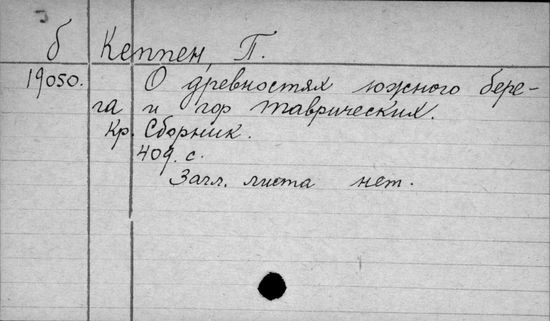 б Кеппен, П.
19050. О древностях южного бере-
га и гор таврических.
Кр. Сборник.
409. с.
Загл. листа нет.